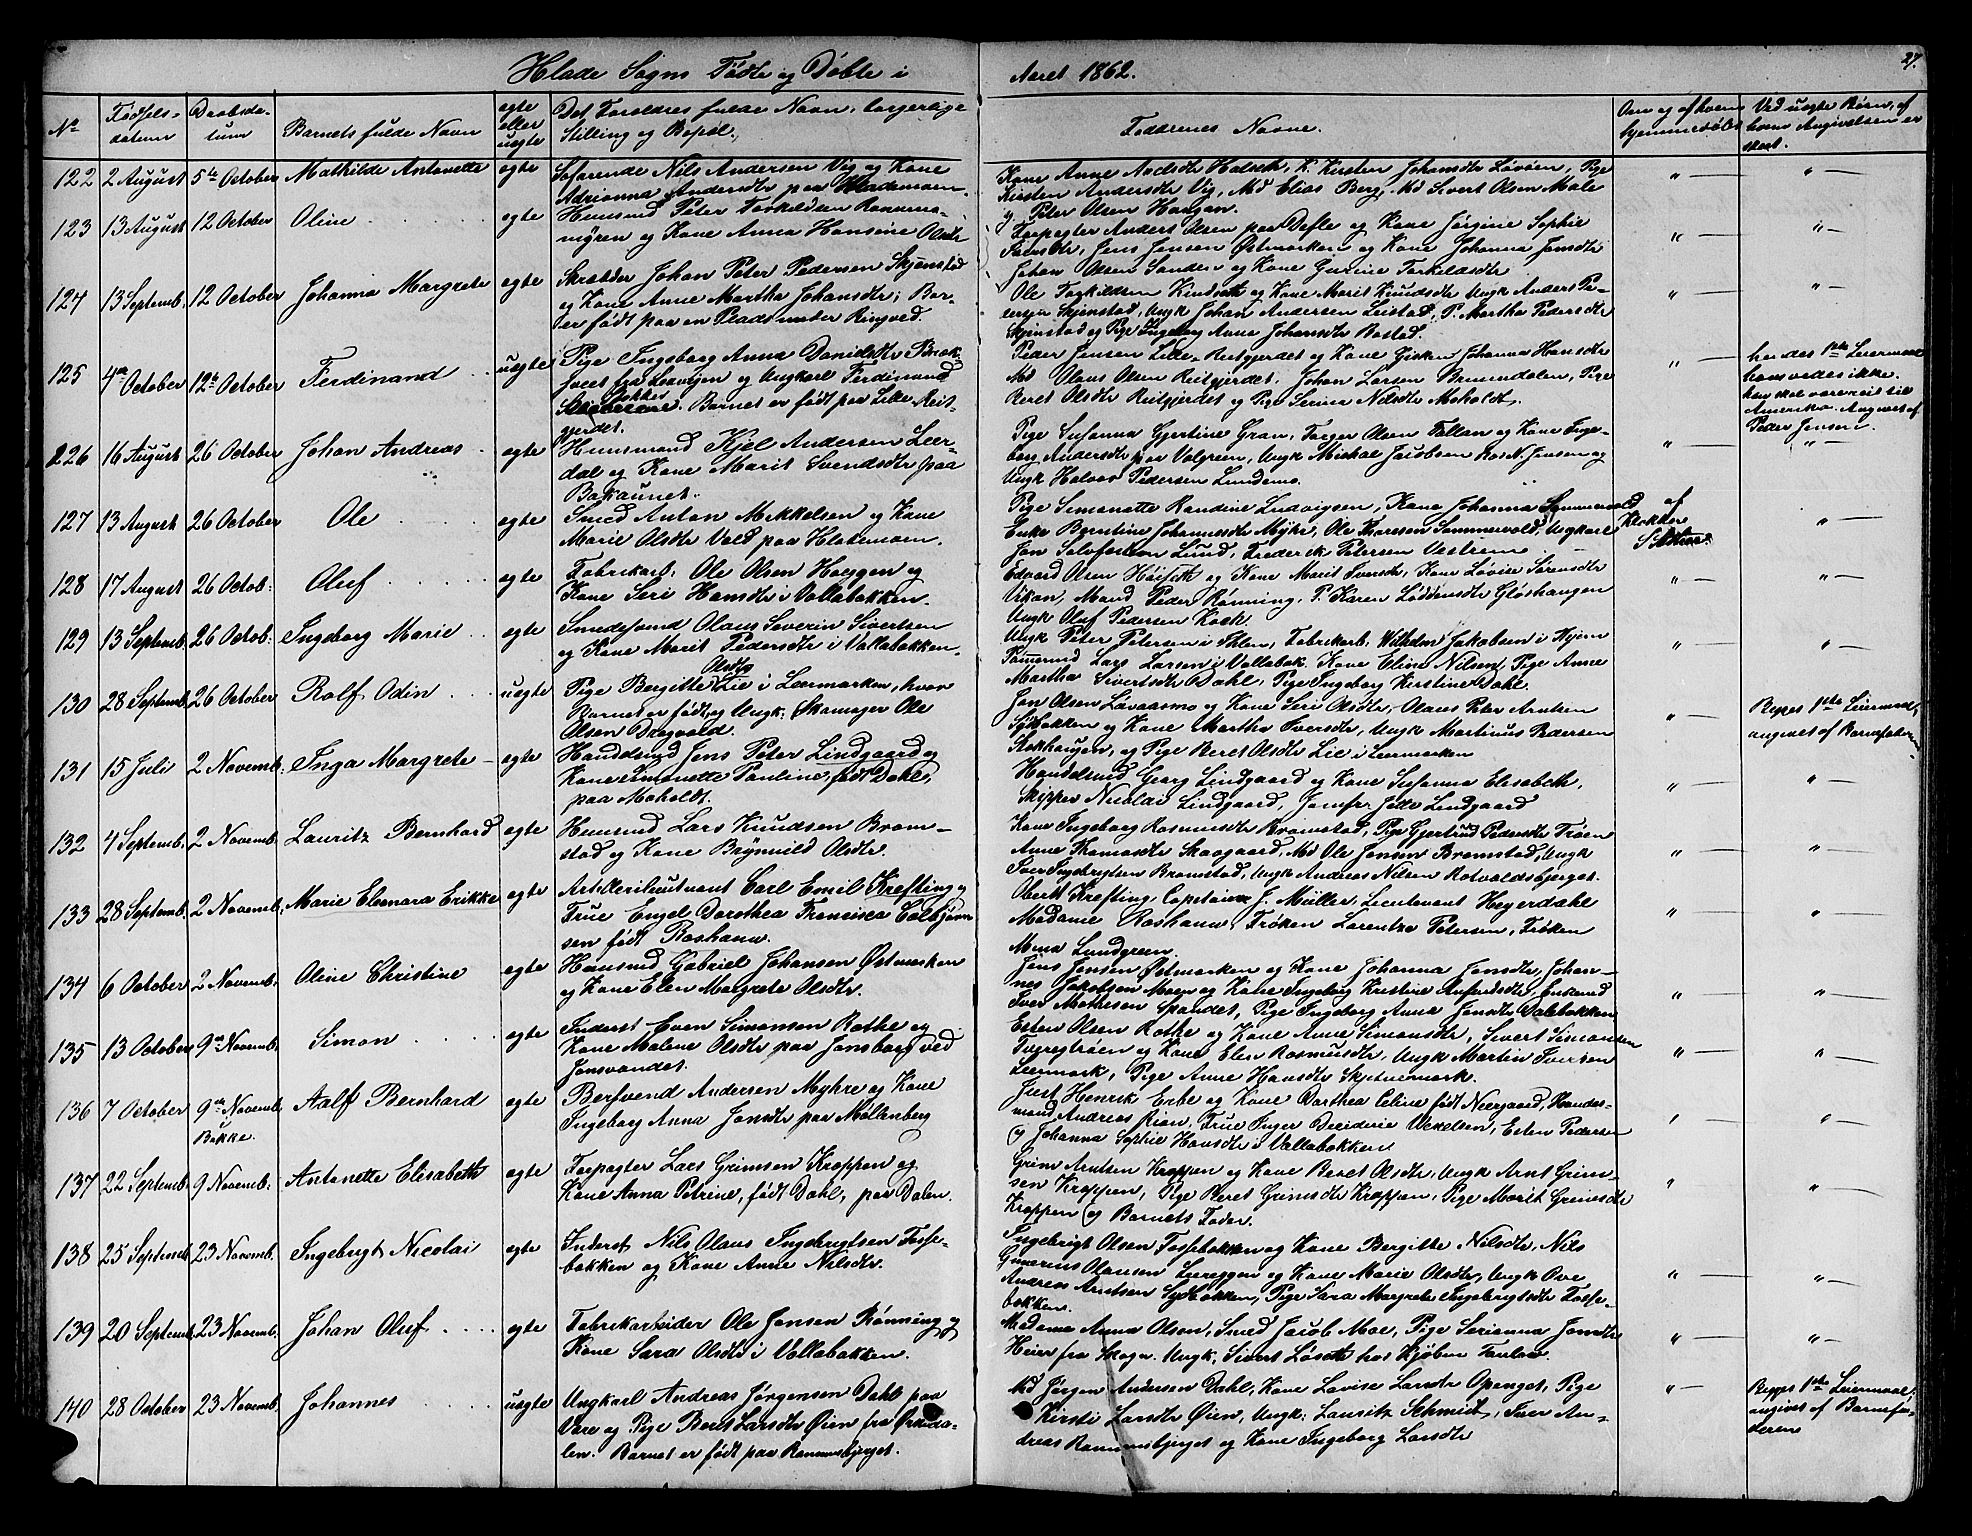 Hlade Sogns Fødte og Døbte i Aaret 1862.
27.
No
Fødsels-datum
Daabsda-tum
Barnets fulde Navn
egte eller uegte
Det Forældres fulde Navn, borgerlige Stilling og Bopæl.
Faddernes Navne.
Om og af hvem hjemmedøbt
Ved uegte Børn, af hvem Angivelsen er skeet.
122 2 August 5te October Mathilde Antonette egte
Søfarende Nils Andersen Vig og Kone
Adrianna Andersdtr paa Hlademoen.
Kirsten Andersdtr Vig, Md Elias Berg, Md Sivert Olsen Moe
og Peter Olsen Haugan.
123 13 August 12 October Oline egte
Huusmd Peter Torkildsen Ronnings-
myren og Kone Anna Hansine Olsdtr
Forpagter Anders Olsen paa Defle og Kone Jørgine Sophie
Jens Jensen Østmarken og Kone Johanna Jonsdtr
Johan Olsen Sanden og Kone Gurine Torkildsdtr
124 13 Septemb. 12 October Johanna Margrete egte
Skrædder Johan Peter Pedersen Skjenstad
og Kone Anne Martha Johansdtr; Bar-
er født paa en Plads under Ringved.
Ole Torkildsen Kindseth og Kone Marit Knudsdtr Ungk Anders Pe-
dersen Skjenstad, Ungk Johan Andersen Leistad, P. Martha Pedersdtr
Skjenstad og Pige Ingeborg Anna Johansdtr Bostad.
125 4de October 12te October Ferdinand uegte
Pige Ingeborg Anna Danielsdtr Bræk-
fra Levangen og Ungkarl Ferdinand
Barnet er født paa Lille Reit-
gjerdet.
Peder Jensen Lille-Reitgjerdet og Kone Gisken Johanna Hansdtr
Md Olaus Olsen Reitgjerdet, Johan Larsen Bruundalen, Pige
Beret Olsdtr Reitgjerdet og Pige Serina Nilsdtr Moholdt.
hendes 1ste Leiermaal
hans vedes ikke.
han skal være reist til
Amerika. Angivet af
Peder Jensen
226 16 August 26 October Johan Andreas egte
Huusmand Kjel Andersen Leer-
dal og Kone Marit Svendsdtr paa
Bakaunet.
Pige Susanna Gjertine Gran, Torger Olsen Tallan og Kone Inge-
borg Andersdtr paa Valgreen, Ungk Michal Jacobsen Ros N. Jensen og
Ungk Halvor Pedersen Lundemo.
127 13 August 26 October Ole egte
Smed Anton Mikkelsen og Kone
Marie Olsdtr Vold paa Hlademoen.
Pige Simonette Randine Ludvigsen, Kone Johanna Sommervold
Enke Berntine Johannesdtr Myhr, Ole Thoresen Sommervold, Ungkarl
Jon Tolefsen Lund, Frederik Petersen Vestrem
af Klokker
128 17 August 26 Octob: Oluf egte
Fabrikarb. Ole Olsen Hoggen og
Kone Seri Hansdtr i Vollabakken.
Edvard Olsen Høiseth og Kone Marit Iversdtr, Kone Lovise Sørensdtr
Vikan, Mand Peder Rønning, P. Karen Loddensdtr Gløshaugen
Ungk Oluf Pedersen Kock.
129 13 Septemb. 26 Octob: Ingeborg Marie egte
Smedesvend Olaus Severin Sivertsen
og Kone Marit Pedersdtr i Vollabakken.
Ungk Peter Petersen i Ihlen, Fabrikarb. Wilhelm Jakobsen i Hjem
Lars Larsen i Vollabak. Kone Eline Nilsen, Pige Anne
Martha Sivertsdtr Dahl, Pige Ingeborg Kirstine Dahl.
130 28 Septemb. 26 October Rolf Odin uegte
Pige Bergitte Olsdtr Lie i Leermarken, hvor
Barnet er født, og Ungk: Skomager Ole
Olsen Dragvold.
Jon Olsen Løvaasmo og Kone Seri Olsdtr, Olaus Peter Arntsen
Sydbakken og Kone Martha Iversdtr, Ungk Martinus Pedersen
Stokhaugen, og Pige Beret Olsdtr Lie i Leermarken
Begges 1ste Leiermaal,
angivet af Barnefaderen
131 15 Juli 2 Novemb. Inga Margrete egte
Handelsmd Jens Peter Lindgaard og
Kone Simonette Pauline, født Dahl,
paa Moholdt.
Handelsmd Georg Lindgaard og Kone Susanna Elisabeth,
Skipper Nicolai Lindgaard, Jomfru Jette Lindgaard
132 4 Septemb. 2 Novemb. Lauritz Bernhard egte
Huusmd Lars Knudsen Brom-
stad og Kone Brynnild Olsdtr.
Kone Ingeborg Rasmusdtr Bromstad, Pige Gjertrud Pedersdtr Troen
Anne Thomasdtr Skaagaard, Md Ole Jonsen Bromstad, Ungk
Iver Ingebrigtsen Bromstad, Ungk Andreas Nilsen Rotvoldsbjerget.
133 28 Septemb. 2 Novemb. Marie Eleonora Erikke egte
Artillerilieutnant Carl Emil Krefting og
Frue Engel Dorothea Francisca Colbjørn-
sen født Roshauw.
Oberst Krefting, Capitain J. Müller, Lieutenant Heyerdahl
Madame Roshauw, Frøken Laurentze Petersen, Frøken
Mina Lundgreen.
134 6 October 2 Novemb. Oline Christine egte
Huusmd Gabriel Johansen Østmarken
og Kone Elen Margrete Olsdtr.
Jens Jensen Østmarken og Kone Johanna Jonsdtr, Johan-
nes Jakobsen Moen og Kone Ingeborg Kristine
Iver Mathesen Spandet, Pige Ingeborg Anna Jonsdtr Dalebakken
135 13 October 9de Novemb. Simon egte
Inderst Even Simonsen Rothe og
Kone Malene Olsdtr paa Jonsborg ved
Jonsvandet.
Esten Olsen Rothe og Kone Anne Simonsdtr, Sivert Simonsen
Tuyregtrøen og Kone Elen Rasmusdtr, Ungk Martin Iversen
Leermark, Pige Anne Hansdtr Skjetnemark.
136 7 October 9de Novemb. Bakke. Aalf Bernhard egte
Bersvend Andersen Myhre og Kone
Ingeborg Anna Jonsdtr paa Møllenberg
Just Henrik Erbe og Kone Dorthea Celine født Neergaard, Handels-
mand Andreas Rian, Frue Inger Desiderie Wexelsen, Esten Pedersen
og Johanna Sophie Hansdtr i Vollabakken
137 22 Septemb. 9 Novemb. Antonette Elisabeth egte
Forpagter Lars Grimsen Kroppen og
Kone Anna Petrine, født Dahl, paa Dalen.
Grim Arntsen Kroppen og Kone Beret Olsdtr, Ungk Arnt Grim-
sen Kroppen, Pige Beret Grimsdtr Kroppen, Pige Marit Grimsdtr
Kroppen og Barnets Fader.
138 25 Septemb 23 Novemb. Ingebrigt Nicolai egte
Inderst Nils Olaus Ingebrigtsen Fosse-
bakken og Kone Anne Nilsdtr.
Ingebrigt Olsen Fossebakken og Kone Bergitte Nilsdtr, Nils
Gunerius Olausen Leereggen og Kone Marie Olsdtr, Ungk Ove
Andreas Arntsen Sydbakken, Pige Sara Margrete Ingebrigtsdtr Fosse-
bakken.
139 20 Septemb 23 Novemb. Johan Oluf egte
Fabrikarbeider Ole Jensen Rønning og
Kone Sara Olsdtr i Vollabakken.
Madame Anna Olson, Smed Jacob Moe, Pige Serianna Jonsdtr
Heier fra Skogn. Ungk. Sivert Løseth hos Kjøbm Finlow.
140 28 October 23 Novemb. Johannes uegte
Ungkarl Andreas Jørgensen Dahl paa
Være og Pige Beret Larsdtr Øien fra Orkeda-
len. Barnet er født paa Ranumsbjerget.
Md Jørgen Andersen Dahl, Kone Lovise Larsdtr Openget, Pige
Kirsti Larsdtr Øien, Ungk: Lauritz Schmidt, Iver An-
dreas Ranumsbjerget og Kone Ingeborg Larsdtr
Begges 1ste Leiermaal,
angivet af Barnefa-
deren